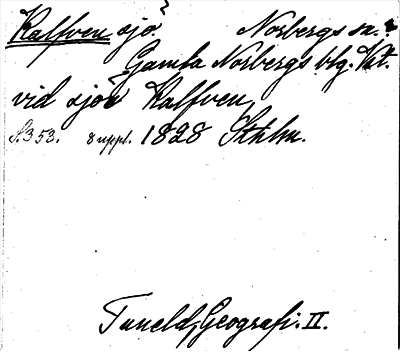 Kalfven sjö. Norbergs sn.
Gamla Norbergs blg.
vid sjön Kalfven,
S.353. 8 uppl. 1828 Sthlm.
Tuneld, Geografi. II.